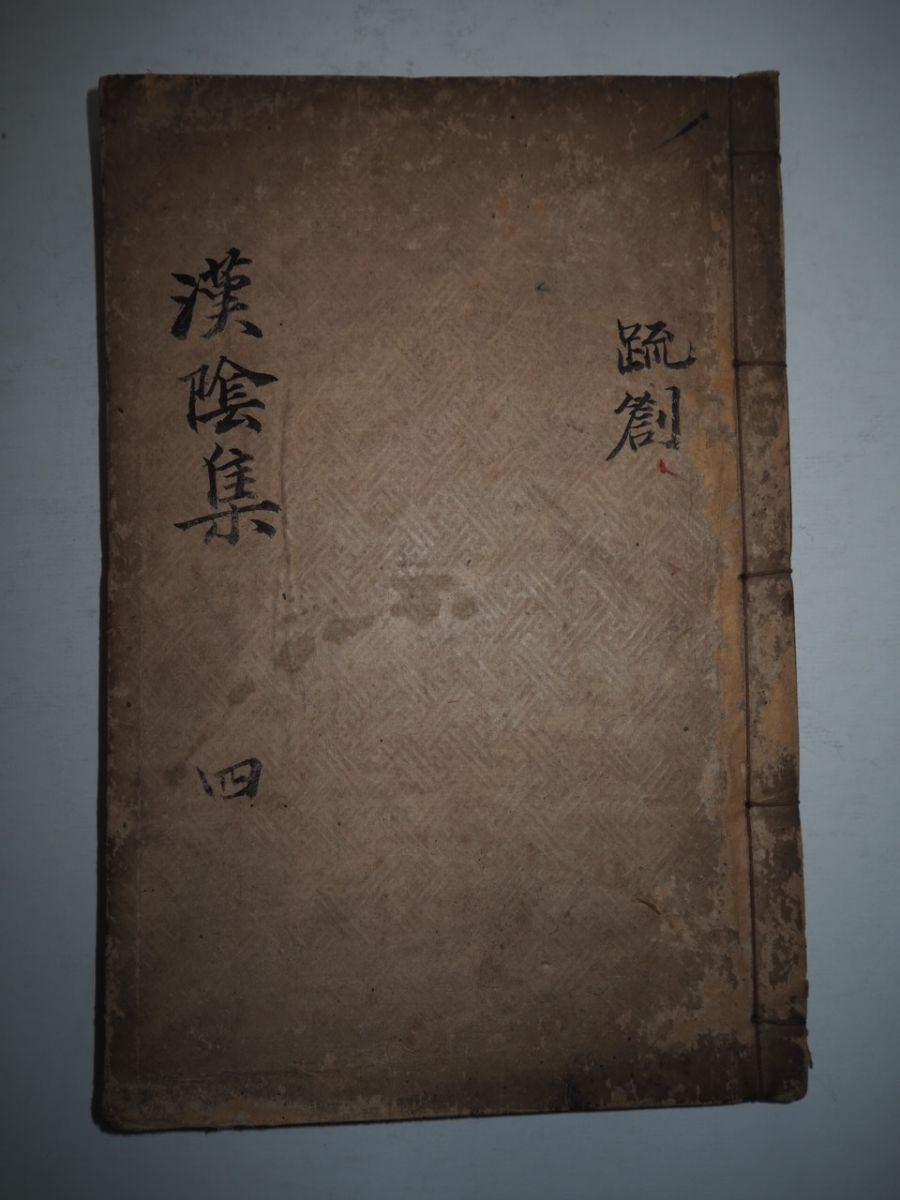 漢陰集
四
疏劄